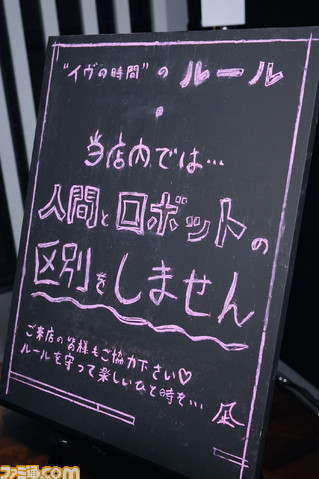 "イヴの時間"の ルール
・
当店内では…
人間とロボットの
区別をしません
ご来店の皆様もご協力下さい♡
ルールを守って楽しいひと時を…
ファミ通.com